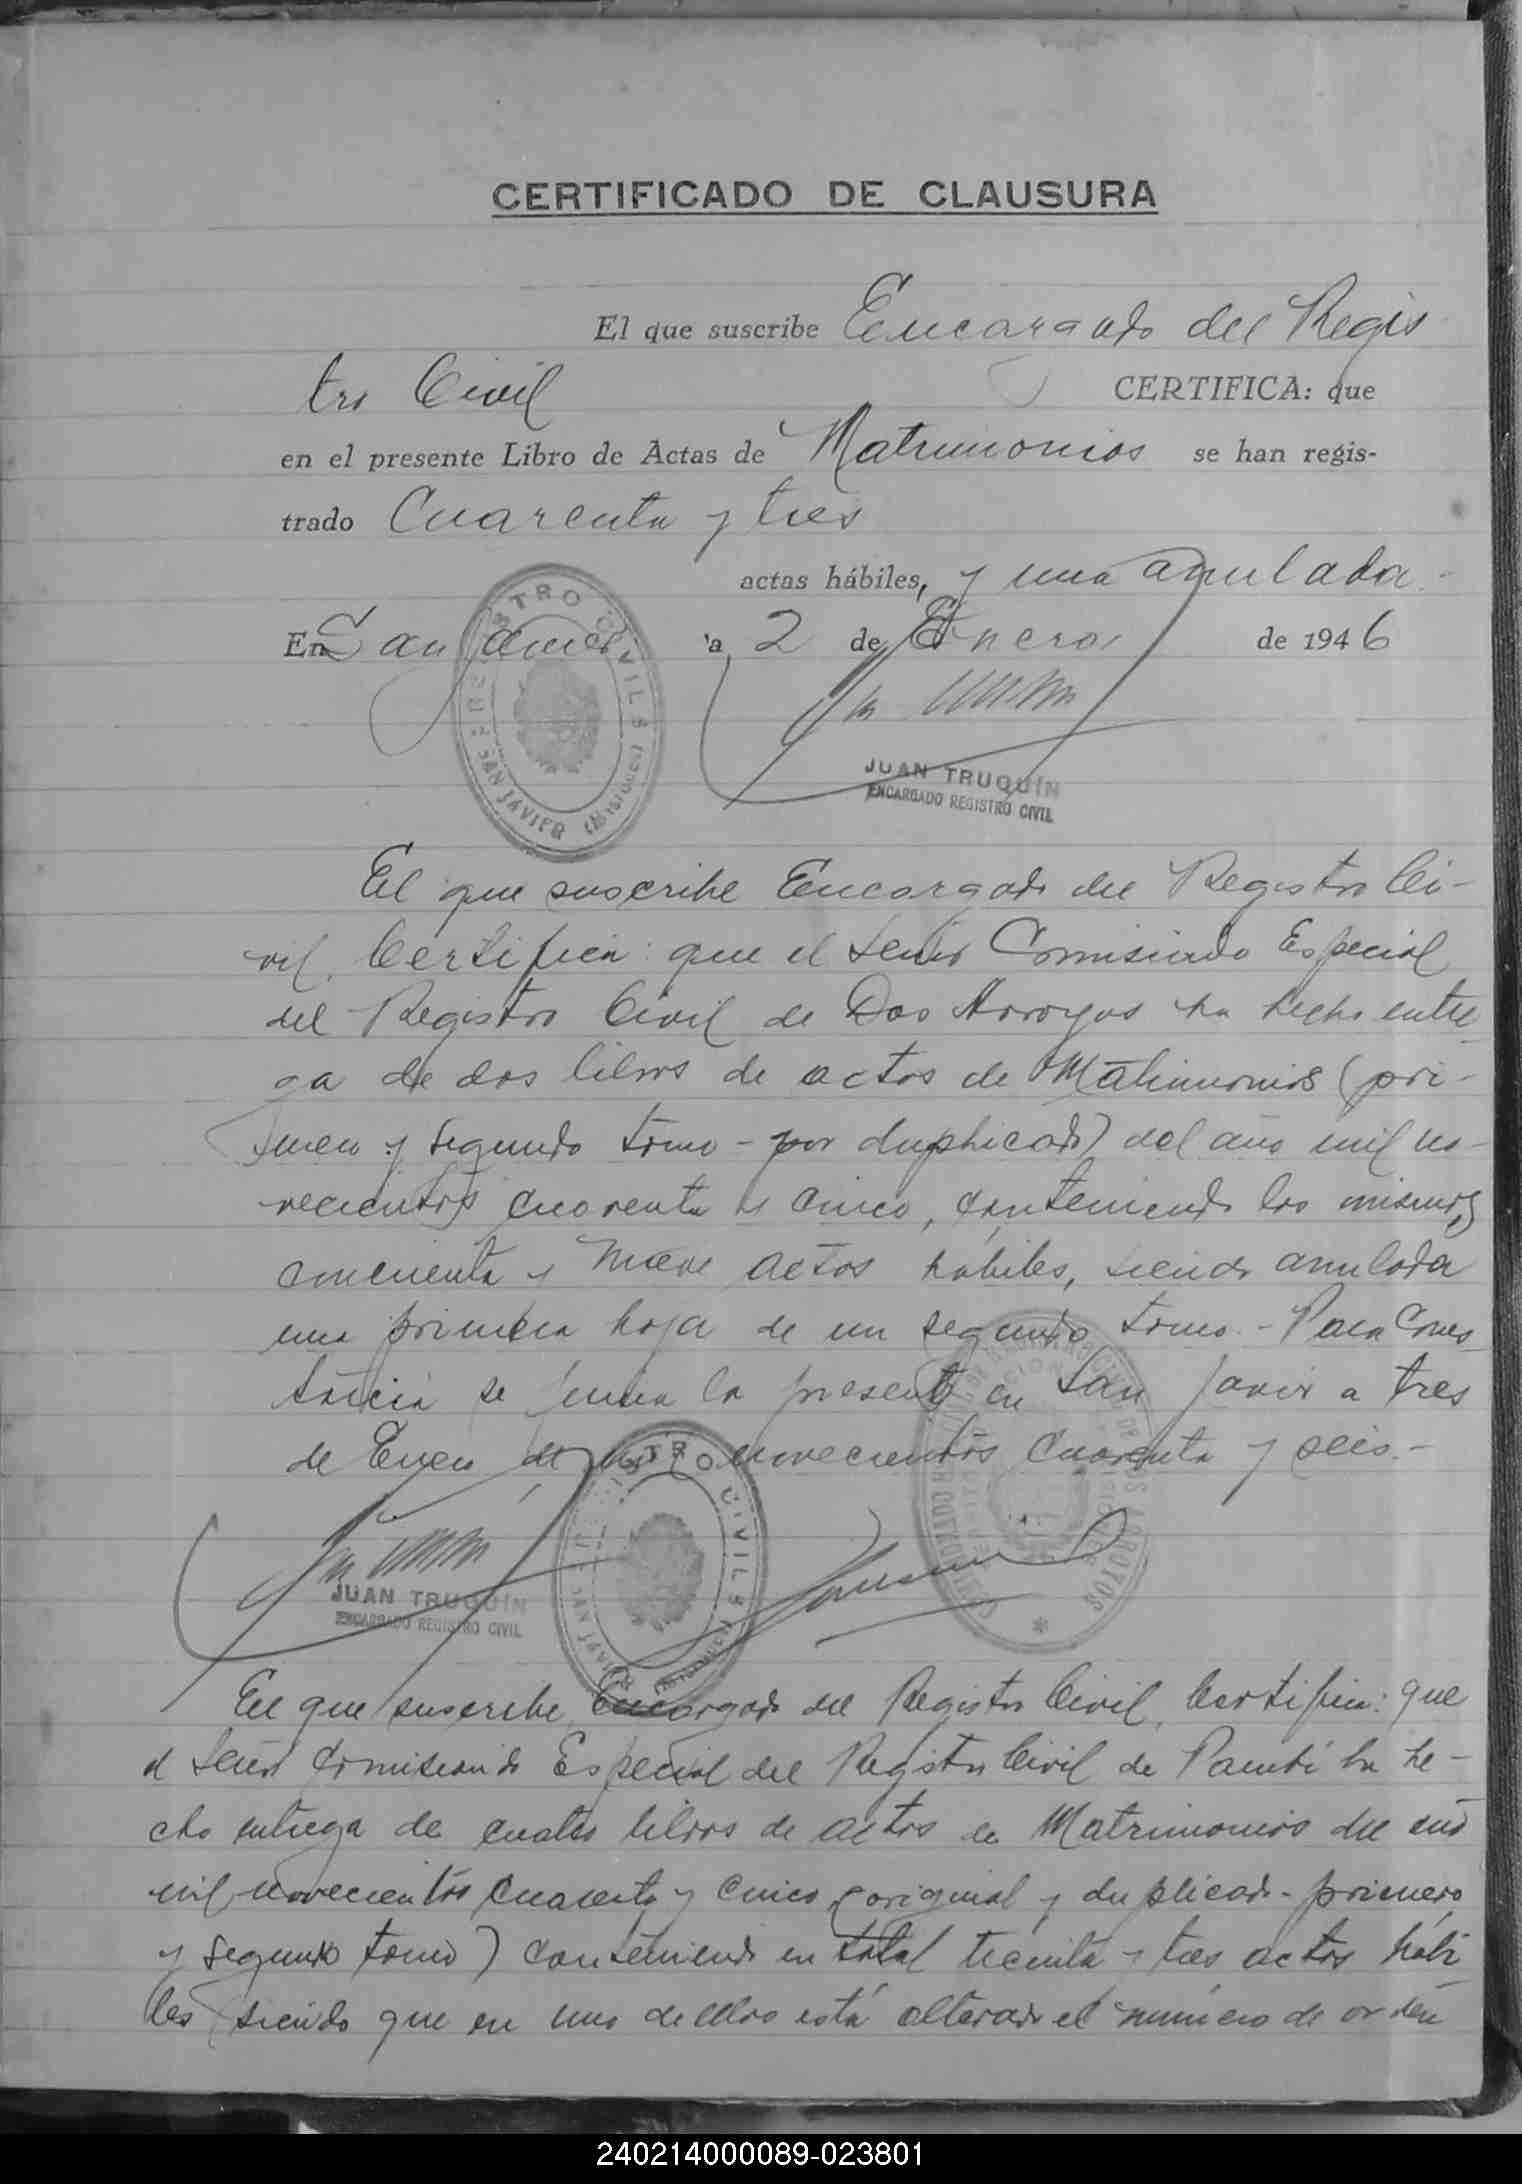 CERTIFICADO DE CLAUSURA
El que suscribe Encargado del Regis
tro Civil CERTIFICA: que
en el presente Libro de Actas de Matrimonios se han regis-
trado Cuarenta y tres
actas hábiles, y una anulada.-
En San Javier a 2 de Enero de 1946
REGISTRO CIVIL
SAN JAVIER (Misiones)
JUAN TRUQUÍN
ENCARGADO REGISTRO CIVIL
El que suscribe Encargado del Registro Ci-
vil, Certifica: que el Señor Comisionado Especial
del Registro Civil de Dos Arroyos ha hecho entre-
ga de dos libros de actas de Matrimonios (pri-
mero y segundo tomo - por duplicado) del año mil no-
vecientos cuarenta y cinco, conteniendo los mismos,
cincuenta y nueve actas hábiles, siendo anulada
una primera hoja de un segundo tomo.- Para Cons-
tancia se firma la presente en San Javier a tres
de Enero de mil novecientos cuarenta y seis.-
JUAN TRUQUÍN
ENCARGADO REGISTRO CIVIL
El que suscribe, Encargado del Registro Civil, Certifica: que
el Señor Comisionado Especial del Registro Civil de Pambí ha he-
cho entrega de cuatro libros de actas de Matrimonios del año
mil novecientos cuarenta y cinco (original y duplicado- primero
y segundo tomo) conteniendo en total treinta y tres actas hábi
les siendo que en uno de ellos está alterado el número de orden
240214000089-023801